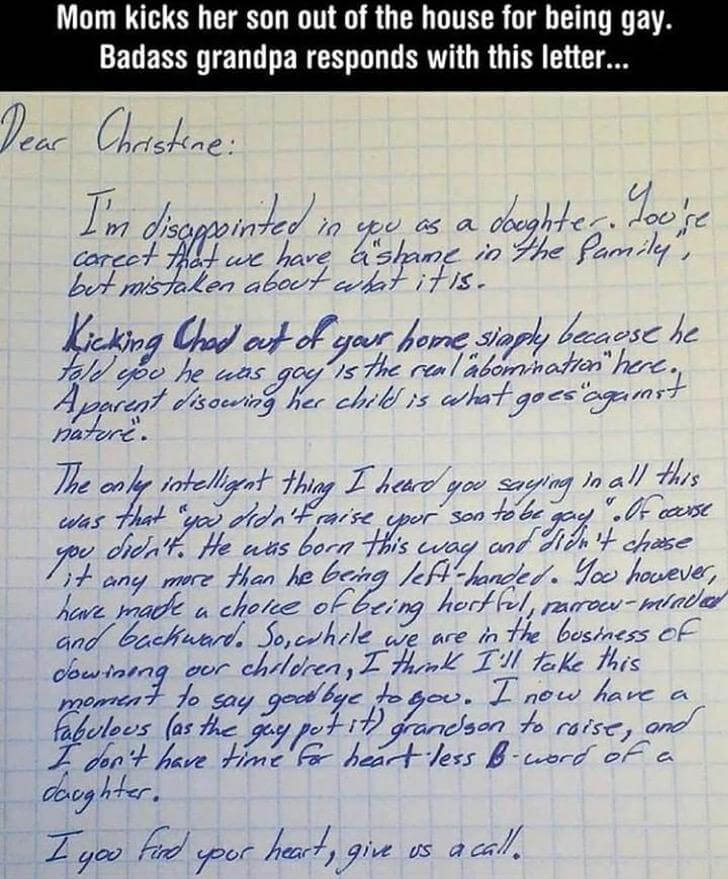 Mom kicks her son out of the house for being gay.
Badass grandpa responds with this letter...
Dear Christine:
I'm disappointed in you as a daughter. You're
corect that we have a "shame in the family",
but mistaken about what it is.
Kicking Chad out of your home simply because he
told you he was gay is the real "abomination" here.
A parent disowing her child is what goes "against
nature".
The only intelligent thing I heard you saying in all this
was that "you didn't raise your son to be gay". Of course
you didn't. He was born this way and didn't chose
it any more than he being left-handed. You however,
have made a choice of being hurtful, narrow-minded
and backward. So, while we are in the business of
dowining our children, I think I'll take this
moment to say goodbye to you. I now have a
fabulous (as the gay put it) grandson to raise, and
I don't have time for heart-less B-word of a
daughter.
I you find your heart, give us a call.